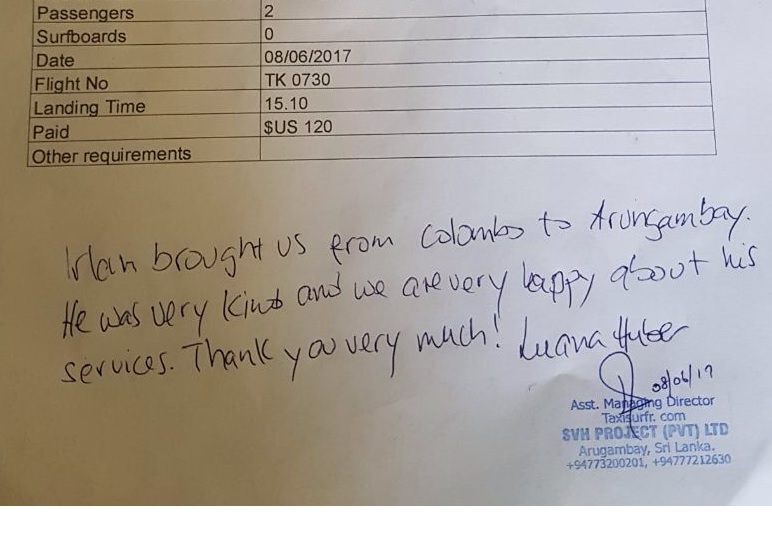 Passengers 2
Surfboards 0
Date 08/06/2017
Flight No TK 0730
Landing Time 15.10
Paid $US 120
Other requirements
Irlan brought us from Colombo to Arungambay.
He was very kind and we are very happy about his
services. Thank you very much! Luana Huber
08/06/17
Asst. Managing Director
Taxisurfr. com
SVH PROJECT (PVT) LTD
Arugambay, Sri Lanka.
+94773200201, +94777212630